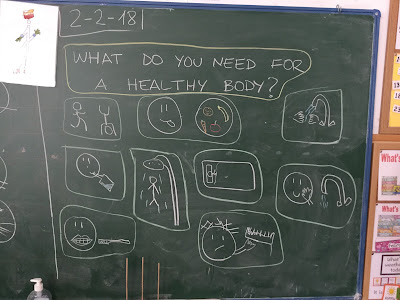 2-2-18
WHAT DO YOU NEED FOR
A HEALTHY BODY?
What's
What's
What